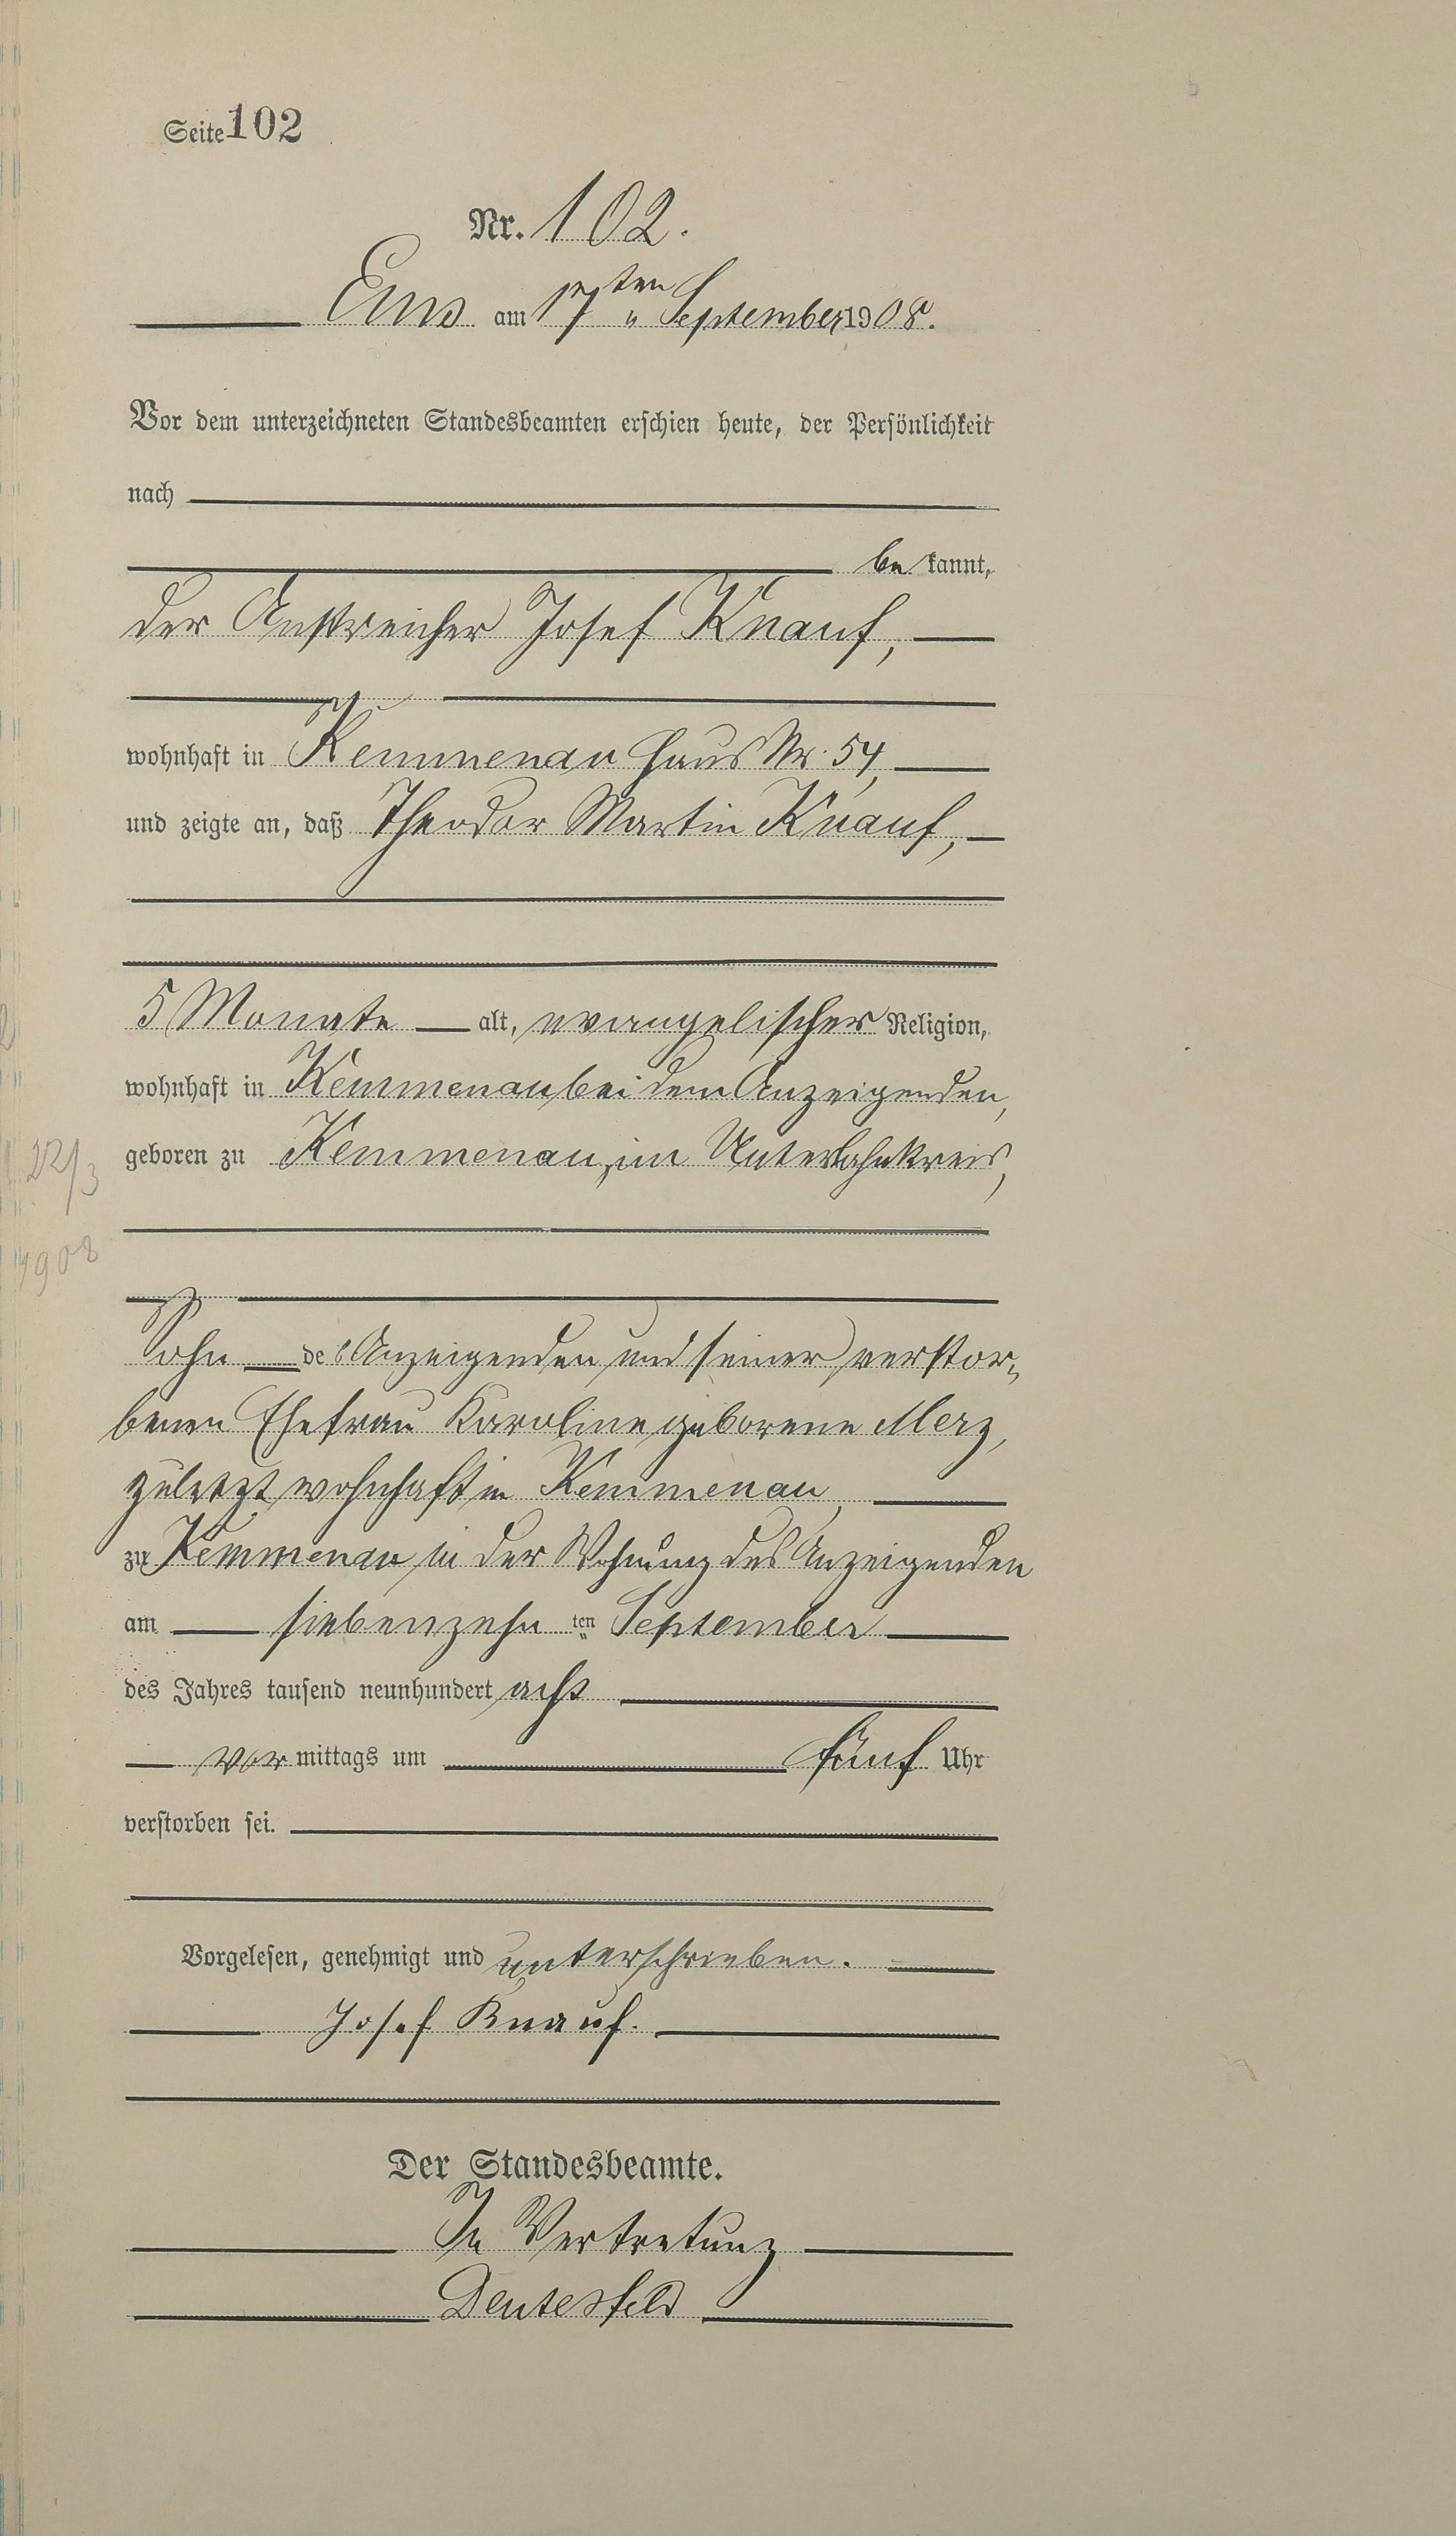 Seite 102
Nr. 102.
Ems am 17ten September 1908.
Vor dem unterzeichneten Standesbeamten erschien heute, der Persönlichkeit
nach
be kannt,
der Anstreicher Josef Knauf,
wohnhaft in Kemmenau Haus Nr. 54,
und zeigte an, daß Theodor Martin Knauf,
5 Monate alt, evangelischer Religion,
wohnhaft in Kemmenau bei dem Anzeigenden,
geboren zu Kemmenau, im Unterlahnkreis,
22/3
1908
Sohn des Anzeigenden und seiner verstor„
benen Ehefrau Karoline geborene Merz,
zuletzt wohnhaft in Kemmenau,
zu Kemmenau in der Wohnung des Anzeigenden
am siebenzehn ten September
des Jahres tausend neunhundert acht
vor mittags um fünf Uhr
verstorben sei.
Vorgelesen, genehmigt und unterschrieben.
Josef Knauf.
Der Standesbeamte.
In Vertretung